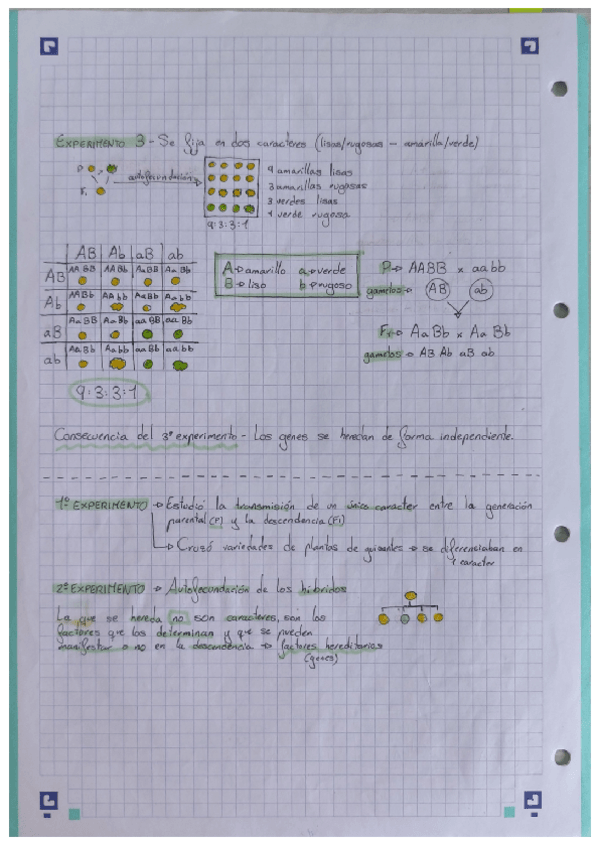 EXPERIMENTO 3 - Se fija en dos caracteres (lisas/rugosas - amarilla/verde)
P
autofecundación
F₁
9 amarillas lisas
3 amarillas rugosas
3 verdes lisas
1 verde rugosa
9:3:3:1
AB Ab aB ab
AB AABB AABb AaBB AaBb
Ab AABb AAbb AaBb Aabb
aB AaBB AaBb aaBB aaBb
ab AaBb Aabb aaBb aabb
9:3:3:1
A→amarillo a→verde
B→liso b→rugoso
P→ AABB x aabb
gametos→ AB ab
F₁→ AaBb x AaBb
gametos→ AB Ab aB ab
Consecuencia del 3º experimento - Los genes se heredan de forma independiente.
1º EXPERIMENTO → Estudió la transmisión de un único caracter entre la generación
parental (P) y la descendencia (F1)
→ Cruzó variedades de plantas de guisantes → se diferenciaban en
1 caracter
2º EXPERIMENTO → Autofecondación de los híbridos
La que se hereda no son caracteres, son los
factores que los determinan y que se pueden
manifestar o no en la descendencia → factores hereditarios
(genes)